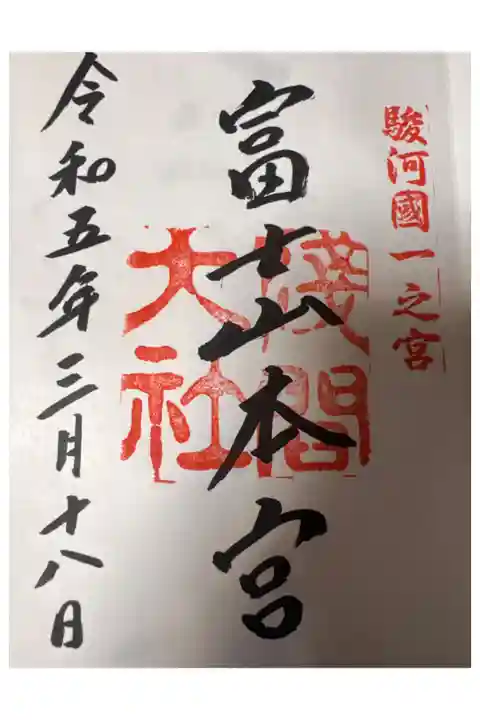 駿河國一之宮
富士山本宮
淺間
大社
令和五年三月十八日